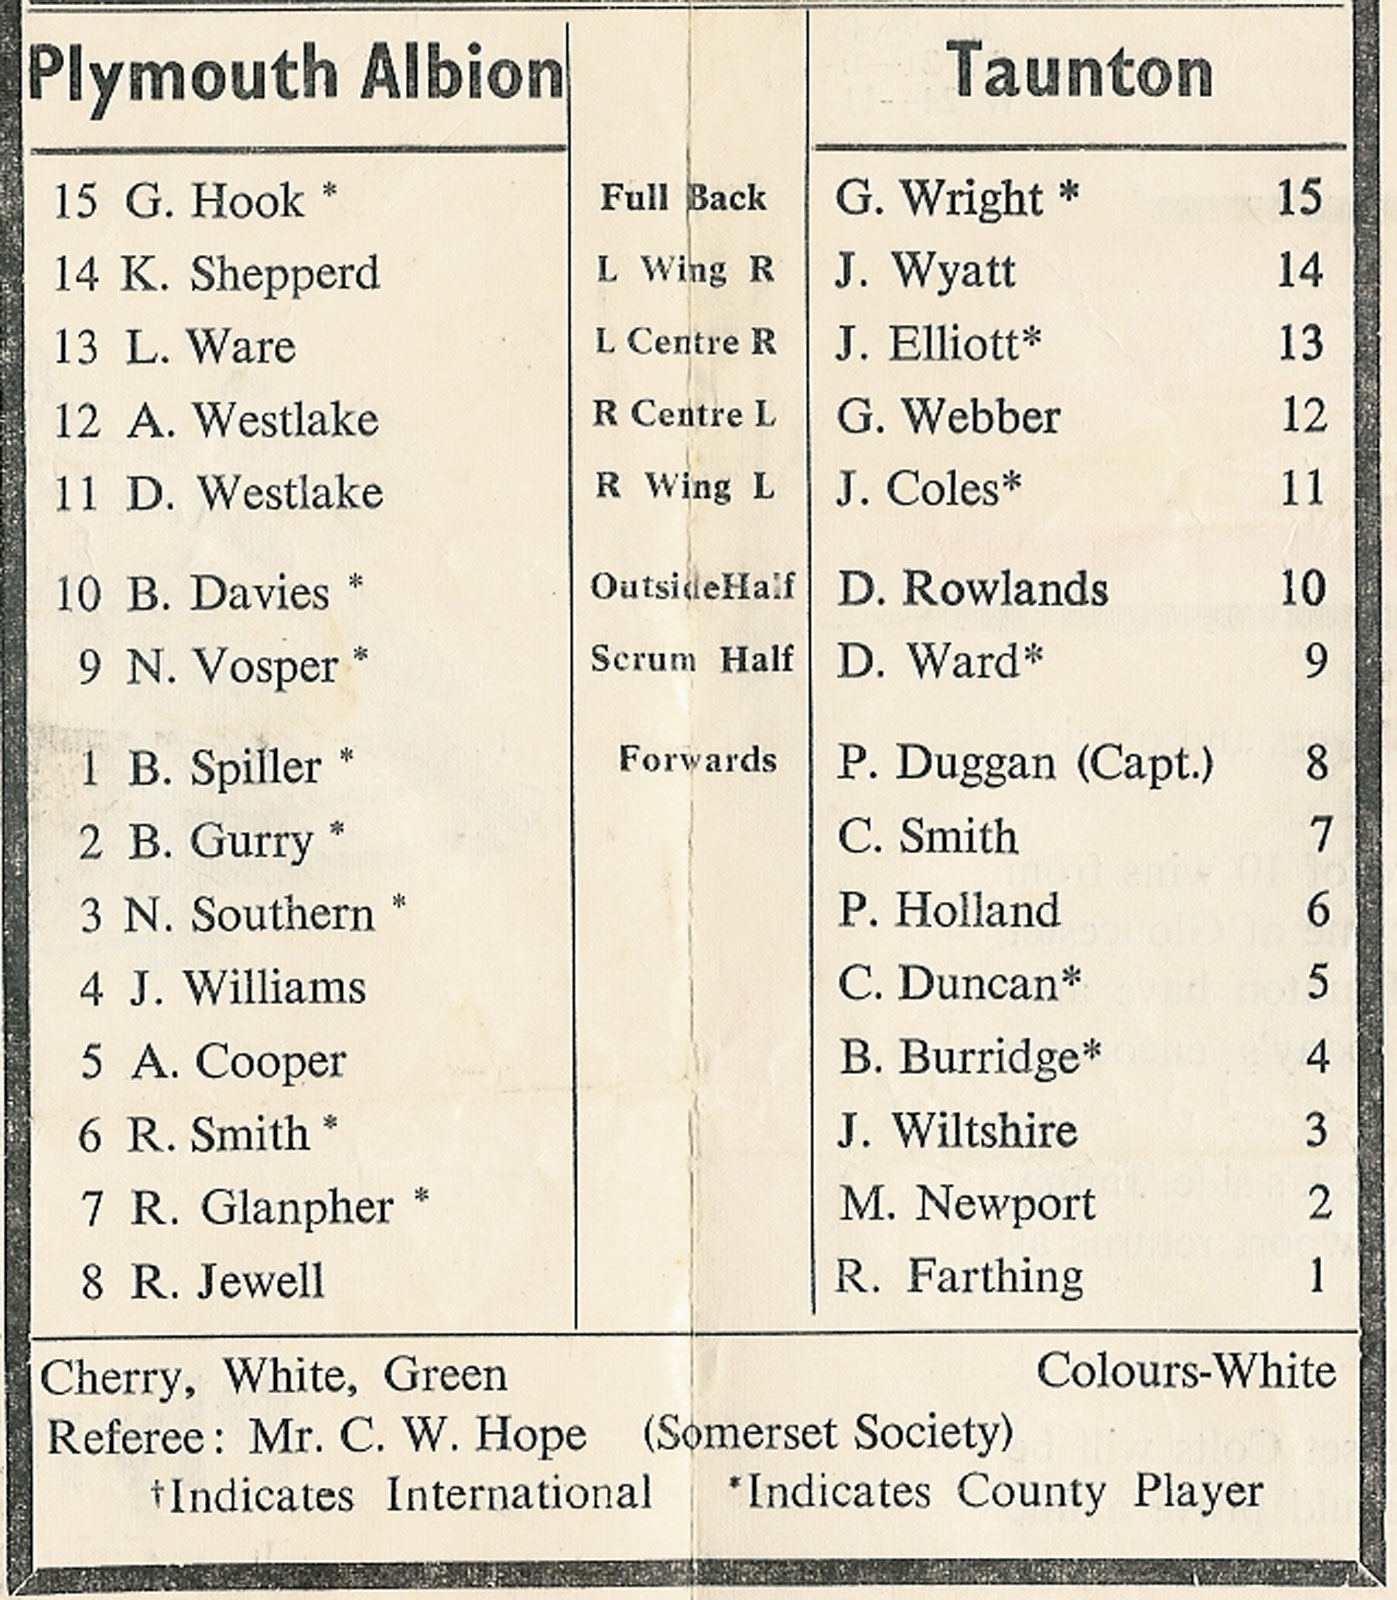 Plymouth Albion Taunton
15 G. Hook * Full Back G. Wright * 15
14 K. Shepperd L Wing R J. Wyatt 14
13 L. Ware L Centre R J. Elliott* 13
12 A. Westlake R Centre L G. Webber 12
11 D. Westlake R Wing L J. Coles* 11
10 B. Davies * OutsideHalf D. Rowlands 10
9 N. Vosper * Scrum Half D. Ward* 9
1 B. Spiller * Forwards P. Duggan (Capt.) 8
2 B. Gurry * C. Smith 7
3 N. Southern * P. Holland 6
4 J. Williams C. Duncan* 5
5 A. Cooper B. Burridge* 4
6 R. Smith * J. Wiltshire 3
7 R. Glanpher * M. Newport 2
8 R. Jewell R. Farthing 1
Cherry, White, Green Colours-White
Referee: Mr. C. W. Hope (Somerset Society)
†Indicates International *Indicates County Player